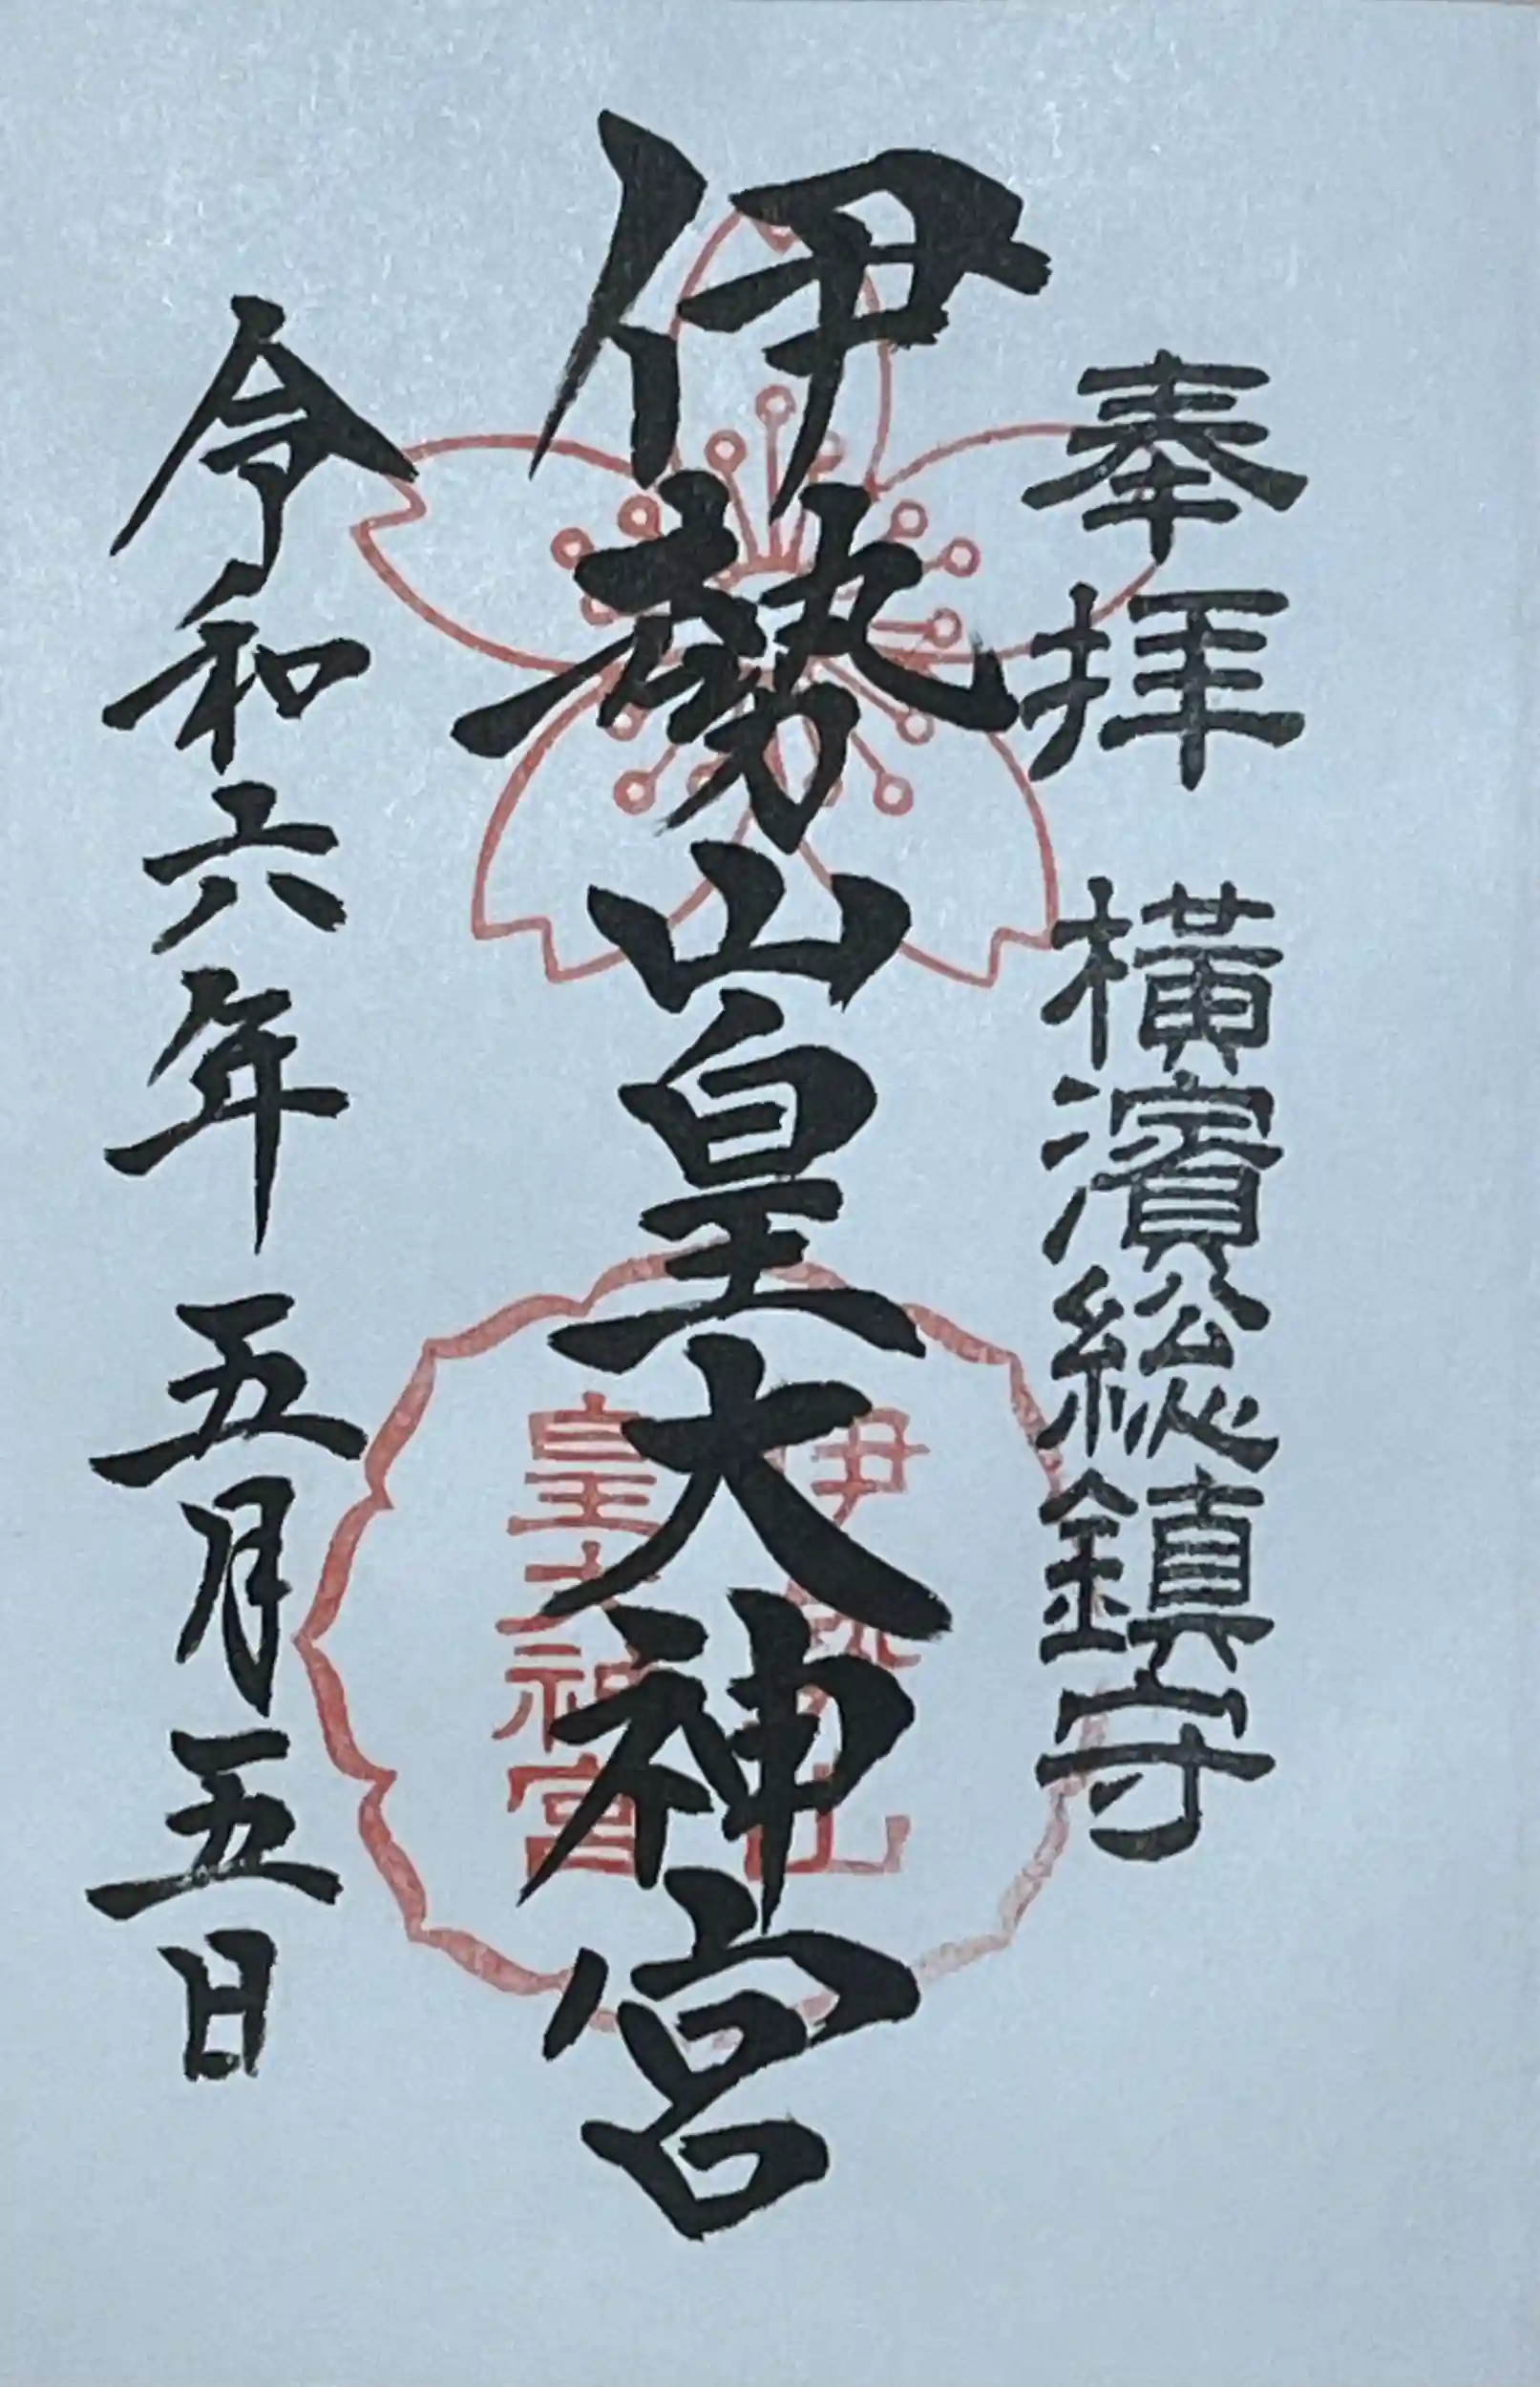 奉拝 横濱総鎮守
伊勢山皇大神宮
伊勢山
皇大神宮
令和六年 五月五日